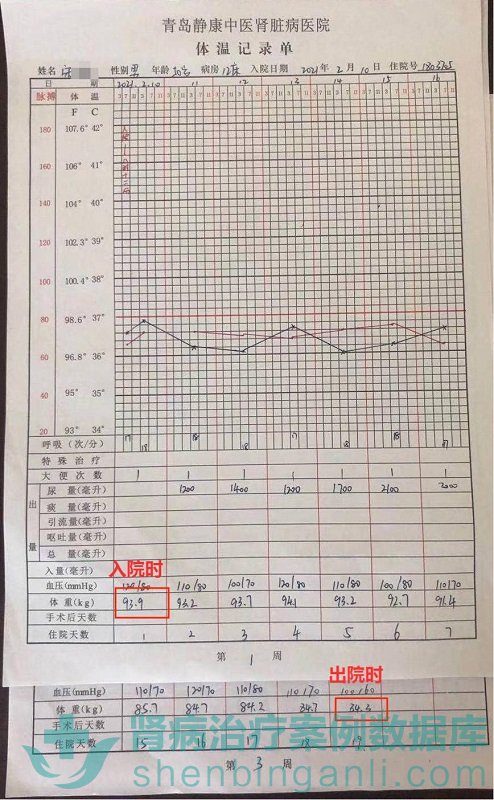 青岛静康中医肾脏病医院
体温记录单
姓名 宋 性别 男 年龄 病房 入院日期 2021 年 2 月 10 日 住院号
日 期 2021.2.10 11 12 13 14 15 16
脉搏 体温 3 7 11 3 7 11
F C
180 107.6° 42°
160 106° 41°
140 104° 40°
120 102.3° 39°
100 100.4° 38°
80 98.6° 37°
60 96.8° 36°
40 95° 35°
20 93° 34°
呼吸(次/分)
特殊治疗
大便次数 1 1 1 1 1 1 1
出量
尿量(毫升) 1200 1400 1200 1700 2100 2000
痰量(毫升)
引流量(毫升)
呕吐量(毫升)
总量(毫升)
入量(毫升)
入院时
血压(mmHg) 120/80 110/80 100/70 120/80 110/80 100/80 110/70
体重(kg) 93.9 93.2 93.7 94.1 93.2 92.7 91.4
手术后天数
住院天数 1 2 3 4 5 6 7
第 1 周
出院时
血压(mmHg) 110/70 120/70 110/80 110/70 100/60
体重(kg) 85.7 84.7 84.2 34.7 34.3
手术后天数
住院天数 15 16 17 18 19
第 3 周
肾病治疗案例数据库
shenbinganli.com